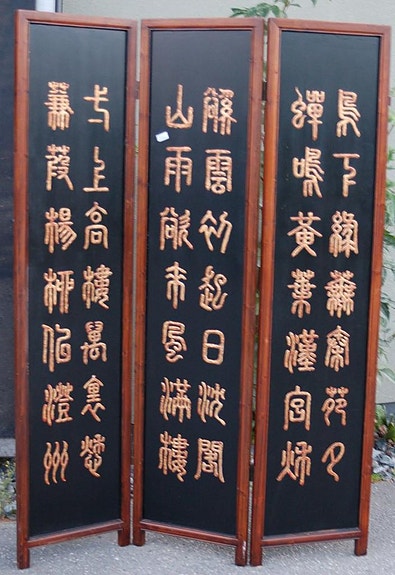 弌上高樓萬里愁
蒹葭楊柳似澄州
谿雲初起日沈閣
山雨欲來風滿樓
鳥下綠蕪秦苑夕
蟬鳴黃葉漢宮秋